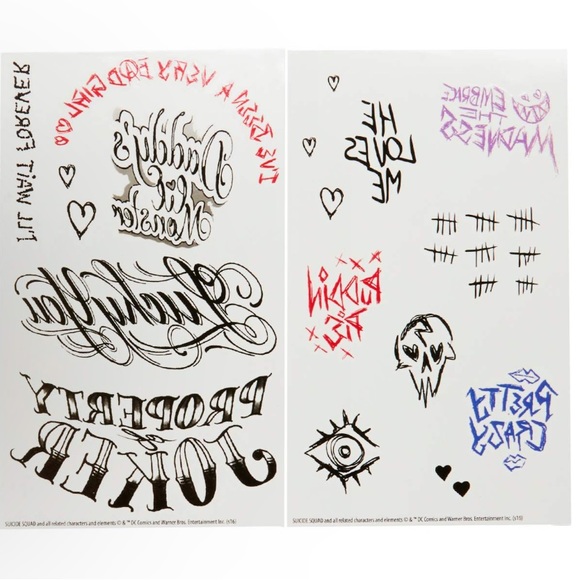 I'LL WAIT FOREVER
I'VE BEEN A VERY BAD GIRL
Daddy's
Lil
Monster
Lucky You
PROPERTY
of
JOKER
SUICIDE SQUAD and all related characters and elements © & ™ DC Comics and Warner Bros. Entertainment Inc. (s16)
HE
LOVES
ME
EMBRACE
THE
MADNESS
PUDDIN
PRETTY
CRAZY
SUICIDE SQUAD and all related characters and elements © & ™ DC Comics and Warner Bros. Entertainment Inc.